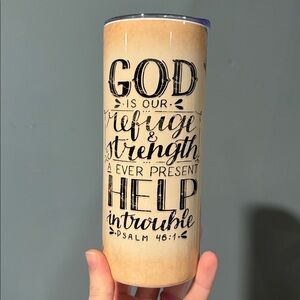 GOD
IS OUR
refuge
&
strength
A EVER PRESENT
HELP
in trouble
PSALM 46:1